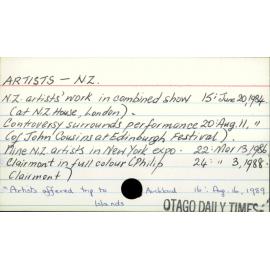 ARTISTS - N.Z.
N.Z. artists' work in combined show 15: June 20, 1984
(at N.Z. House, London).
Controversy surrounds performance 20: Aug. 11, "
(of John Cousins at Edinburgh Festival).
Nine N.Z. artists in New York expo. - 22: Mar 13, 1986
Clairmont in full colour (Philip 24: " 3, 1988.
Clairmont)
" Artists offered trip to Auckland 16: Aug. 16, 1989
Islands
OTAGO DAILY TIMES